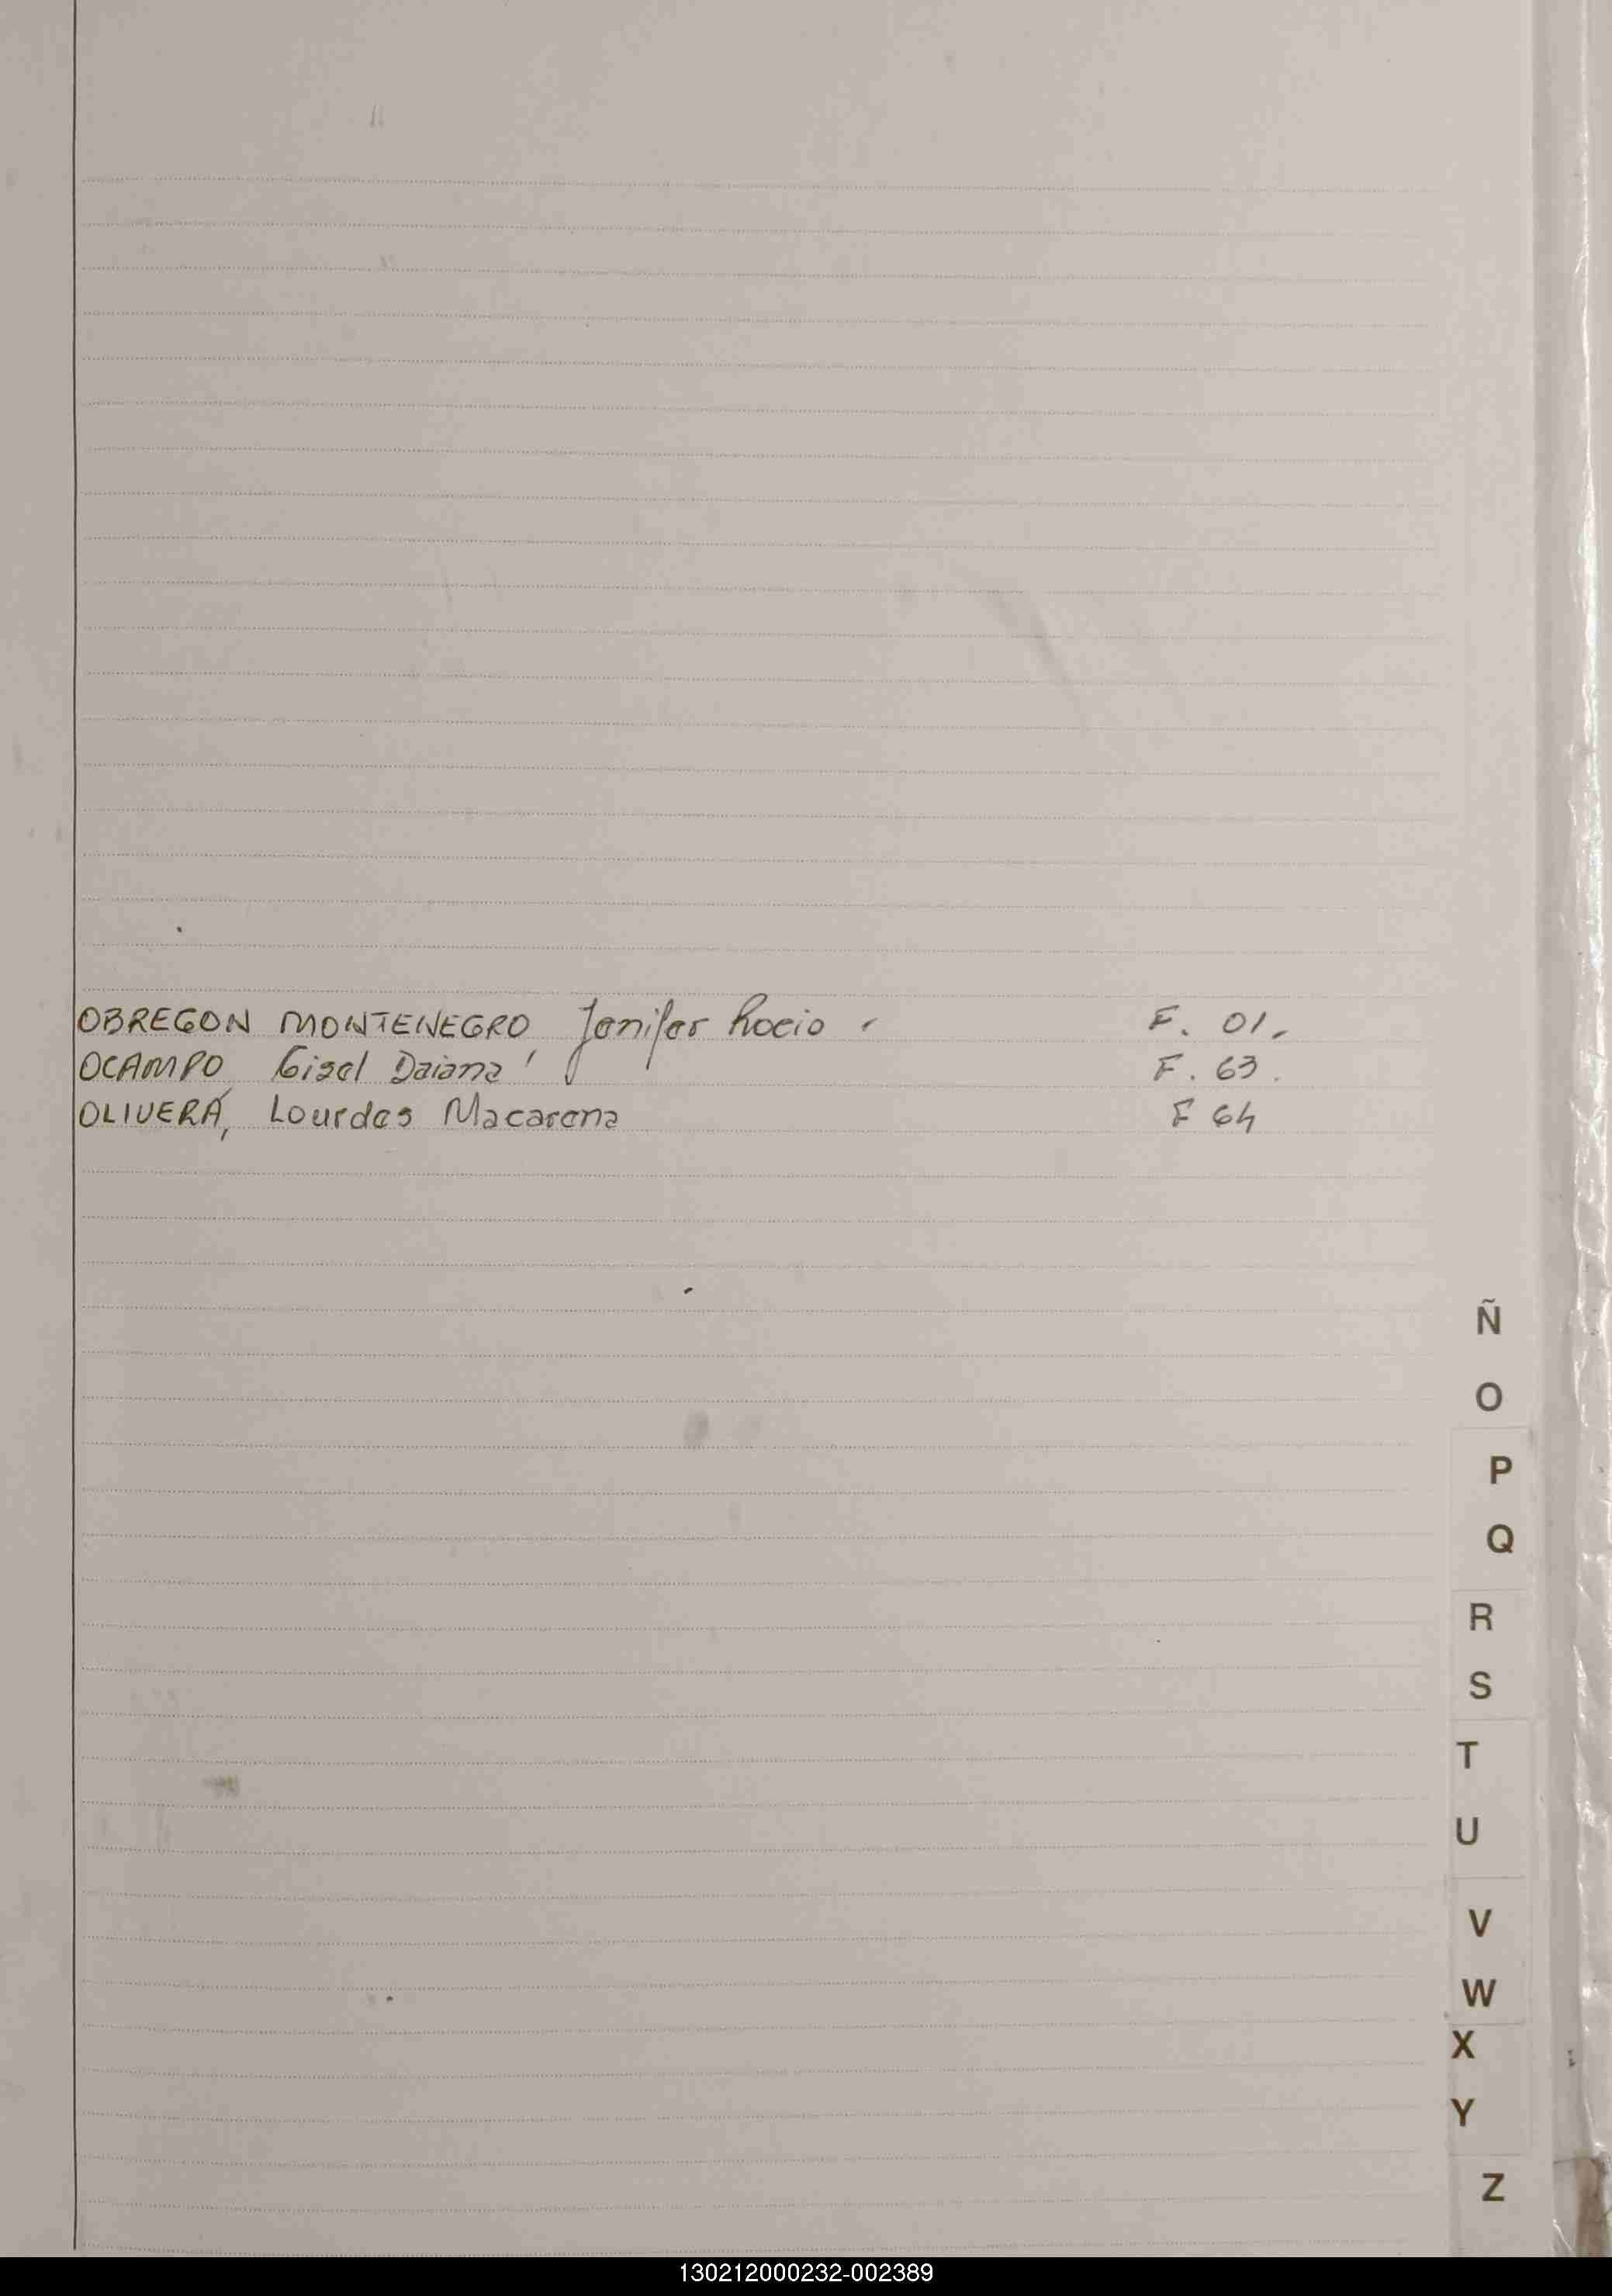 OBREGON MONTENEGRO Jenifer Rocio - F. 01.-
OCAMPO Gisel Daiana F. 63.
OLIVERA, Lourdes Macarena F 64
Ñ
O
P
Q
R
S
T
U
V
W
X
Y
Z
130212000232-002389